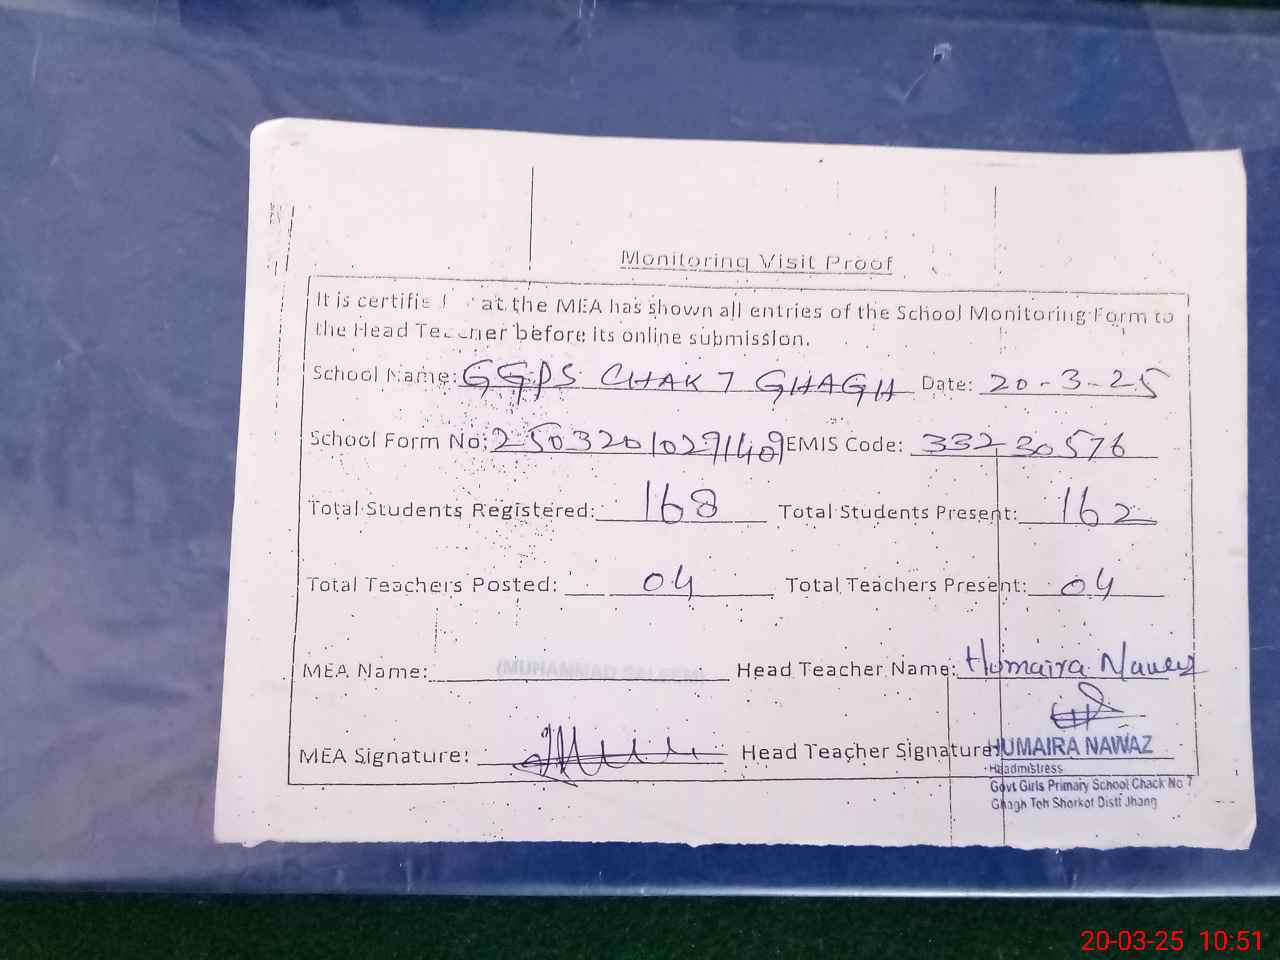 Monitoring Visit Proof
It is certifie at the MEA has shown all entries of the School Monitoring Form to
the Head Teacher before its online submission.
School Name: GGPS CHAK 7 GHAGH Date: 20-3-25
School Form No: 25032010291409 EMIS Code: 33230576
Total Students Registered: 168 Total Students Present: 162
Total Teachers Posted: 04 Total Teachers Present: 04
MEA Name: (MUHAMMAD SALEEM) Head Teacher Name: Humaira Nawaz
MEA Signature: Head Teacher Signature:
HUMAIRA NAWAZ
Headmistress
Govt Girls Primary School Chack No 7
Ghagh Teh Shorkot Distt Jhang
20-03-25 10:51